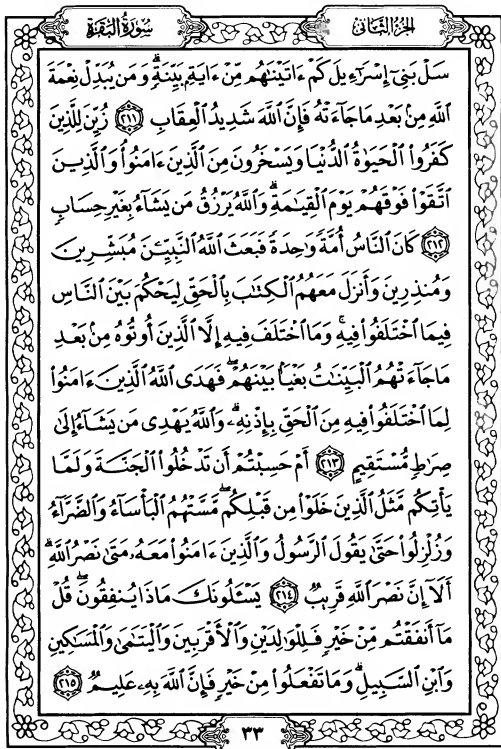 سُورَةُ البَقَرَةِ
الجُزْءُ الثَّانِي
سَلْ بَنِىٓ إِسْرَٰٓءِيلَ كَمْ ءَاتَيْنَٰهُم مِّنْ ءَايَةِۭ بَيِّنَةٍۗ وَمَن يُبَدِّلْ نِعْمَةَ
ٱللَّهِ مِنۢ بَعْدِ مَا جَآءَتْهُ فَإِنَّ ٱللَّهَ شَدِيدُ ٱلْعِقَابِ ٢١١ زُيِّنَ لِلَّذِينَ
كَفَرُوا۟ ٱلْحَيَوٰةُ ٱلدُّنْيَا وَيَسْخَرُونَ مِنَ ٱلَّذِينَ ءَامَنُوا۟ۘ وَٱلَّذِينَ
ٱتَّقَوْا۟ فَوْقَهُمْ يَوْمَ ٱلْقِيَٰمَةِۗ وَٱللَّهُ يَرْزُقُ مَن يَشَآءُ بِغَيْرِ حِسَابٍ
٢١٢ كَانَ ٱلنَّاسُ أُمَّةً وَٰحِدَةً فَبَعَثَ ٱللَّهُ ٱلنَّبِيِّـۧنَ مُبَشِّرِينَ
وَمُنذِرِينَ وَأَنزَلَ مَعَهُمُ ٱلْكِتَٰبَ بِٱلْحَقِّ لِيَحْكُمَ بَيْنَ ٱلنَّاسِ
فِيمَا ٱخْتَلَفُوا۟ فِيهِۚ وَمَا ٱخْتَلَفَ فِيهِ إِلَّا ٱلَّذِينَ أُوتُوهُ مِنۢ بَعْدِ
مَا جَآءَتْهُمُ ٱلْبَيِّنَٰتُ بَغْيًۢا بَيْنَهُمْۖ فَهَدَى ٱللَّهُ ٱلَّذِينَ ءَامَنُوا۟
لِمَا ٱخْتَلَفُوا۟ فِيهِ مِنَ ٱلْحَقِّ بِإِذْنِهِۦۗ وَٱللَّهُ يَهْدِى مَن يَشَآءُ إِلَىٰ
صِرَٰطٍ مُّسْتَقِيمٍ ٢١٣ أَمْ حَسِبْتُمْ أَن تَدْخُلُوا۟ ٱلْجَنَّةَ وَلَمَّا
يَأْتِكُم مَّثَلُ ٱلَّذِينَ خَلَوْا۟ مِن قَبْلِكُمۖ مَّسَّتْهُمُ ٱلْبَأْسَآءُ وَٱلضَّرَّآءُ
وَزُلْزِلُوا۟ حَتَّىٰ يَقُولَ ٱلرَّسُولُ وَٱلَّذِينَ ءَامَنُوا۟ مَعَهُۥ مَتَىٰ نَصْرُ ٱللَّهِۗ
أَلَآ إِنَّ نَصْرَ ٱللَّهِ قَرِيبٌ ٢١٤ يَسْـَٔلُونَكَ مَاذَا يُنفِقُونَۖ قُلْ
مَآ أَنفَقْتُم مِّنْ خَيْرٍ فَلِلْوَٰلِدَيْنِ وَٱلْأَقْرَبِينَ وَٱلْيَتَٰمَىٰ وَٱلْمَسَٰكِينِ
وَٱبْنِ ٱلسَّبِيلِۗ وَمَا تَفْعَلُوا۟ مِنْ خَيْرٍ فَإِنَّ ٱللَّهَ بِهِۦ عَلِيمٌ ٢١٥
٣٣